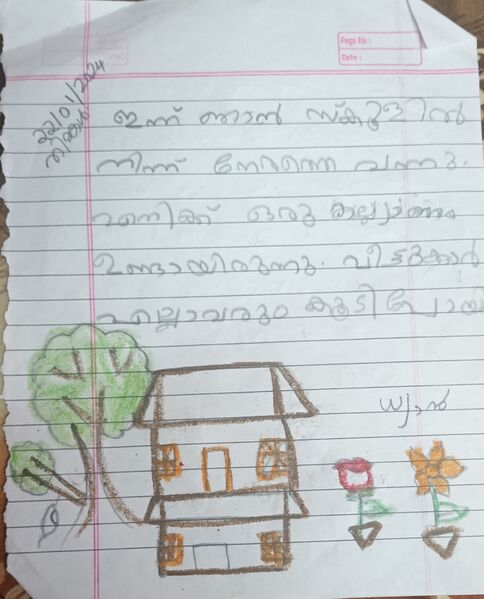 Page No :
Date :
22/01/2024
തിങ്കൾ
ഇന്ന് ഞാൻ സ്കൂളിൽ
നിന്ന് നേരത്തെ വന്നു.
എനിക്ക് ഒരു കല്ല്യാണം
ഉണ്ടായിരുന്നു. വീട്ടുക്കാർ
എല്ലാവരും കൂടി പോയി
ധ്യാൻ